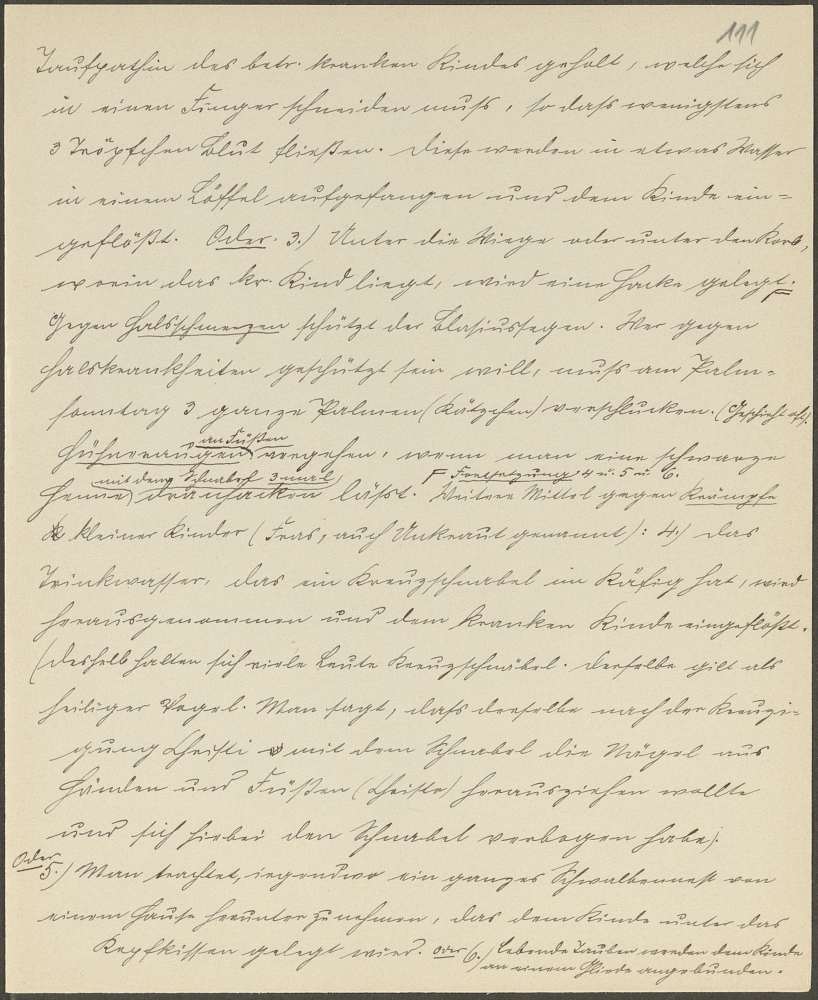 111
Taufpathin des betr. kranken Kindes geholt, welche sich
in einen Finger schneiden muss, so dass wenigstens
3 Tröpfchen Blut fließen. Diese werden in etwas Wasser
in einem Löffel aufgefangen und dem Kinde ein=
geflößt. Oder. 3.) Unter die Wiege oder unter den Korb,
worin das kr. Kind liegt, wird eine Hacke gelegt. F
Gegen Halsschmerzen schützt der Blasiussegen. Wer gegen
Halskrankheiten geschützt sein will, muss am Palm=
sonntag 3 ganze Palmen (Kätzchen) verschlucken. (Geschieht oft).
an Füßen
Hühneraugen vergehen, wenn man eine schwarze
mit dem Schnabel 3 mal
F Fortsetzung 4 u. 5 u 6.
Henne dranhacken lässt. Weitere Mittel gegen Krämpfe
kleiner Kinder (Fras, auch Unkraut genannt): 4.) Das
Trinkwasser, das ein Kreuzschnabel im Käfig hat, wird
herausgenommen und dem kranken Kinde eingeflößt.
(Deshalb halten sich viele Leute Kreuzschnäbel. Derselbe gilt als
heiliger Vogel. Man sagt, dass derselbe nach der Kreuzi=
gung Christi mit dem Schnabel die Nägel aus
Händen und Füßen (Christo) herausziehen wollte
und sich hiebei den Schnabel verbogen habe).
Oder
5.) Man trachtet, irgendwo ein ganzes Schwalbennest von
einem Hause herunterzunehmen, das dem Kinde unter das
Kopfkissen gelegt wird. Oder 6.) Lebende Tauben werden dem Kinde
an einem Gliede angebunden.